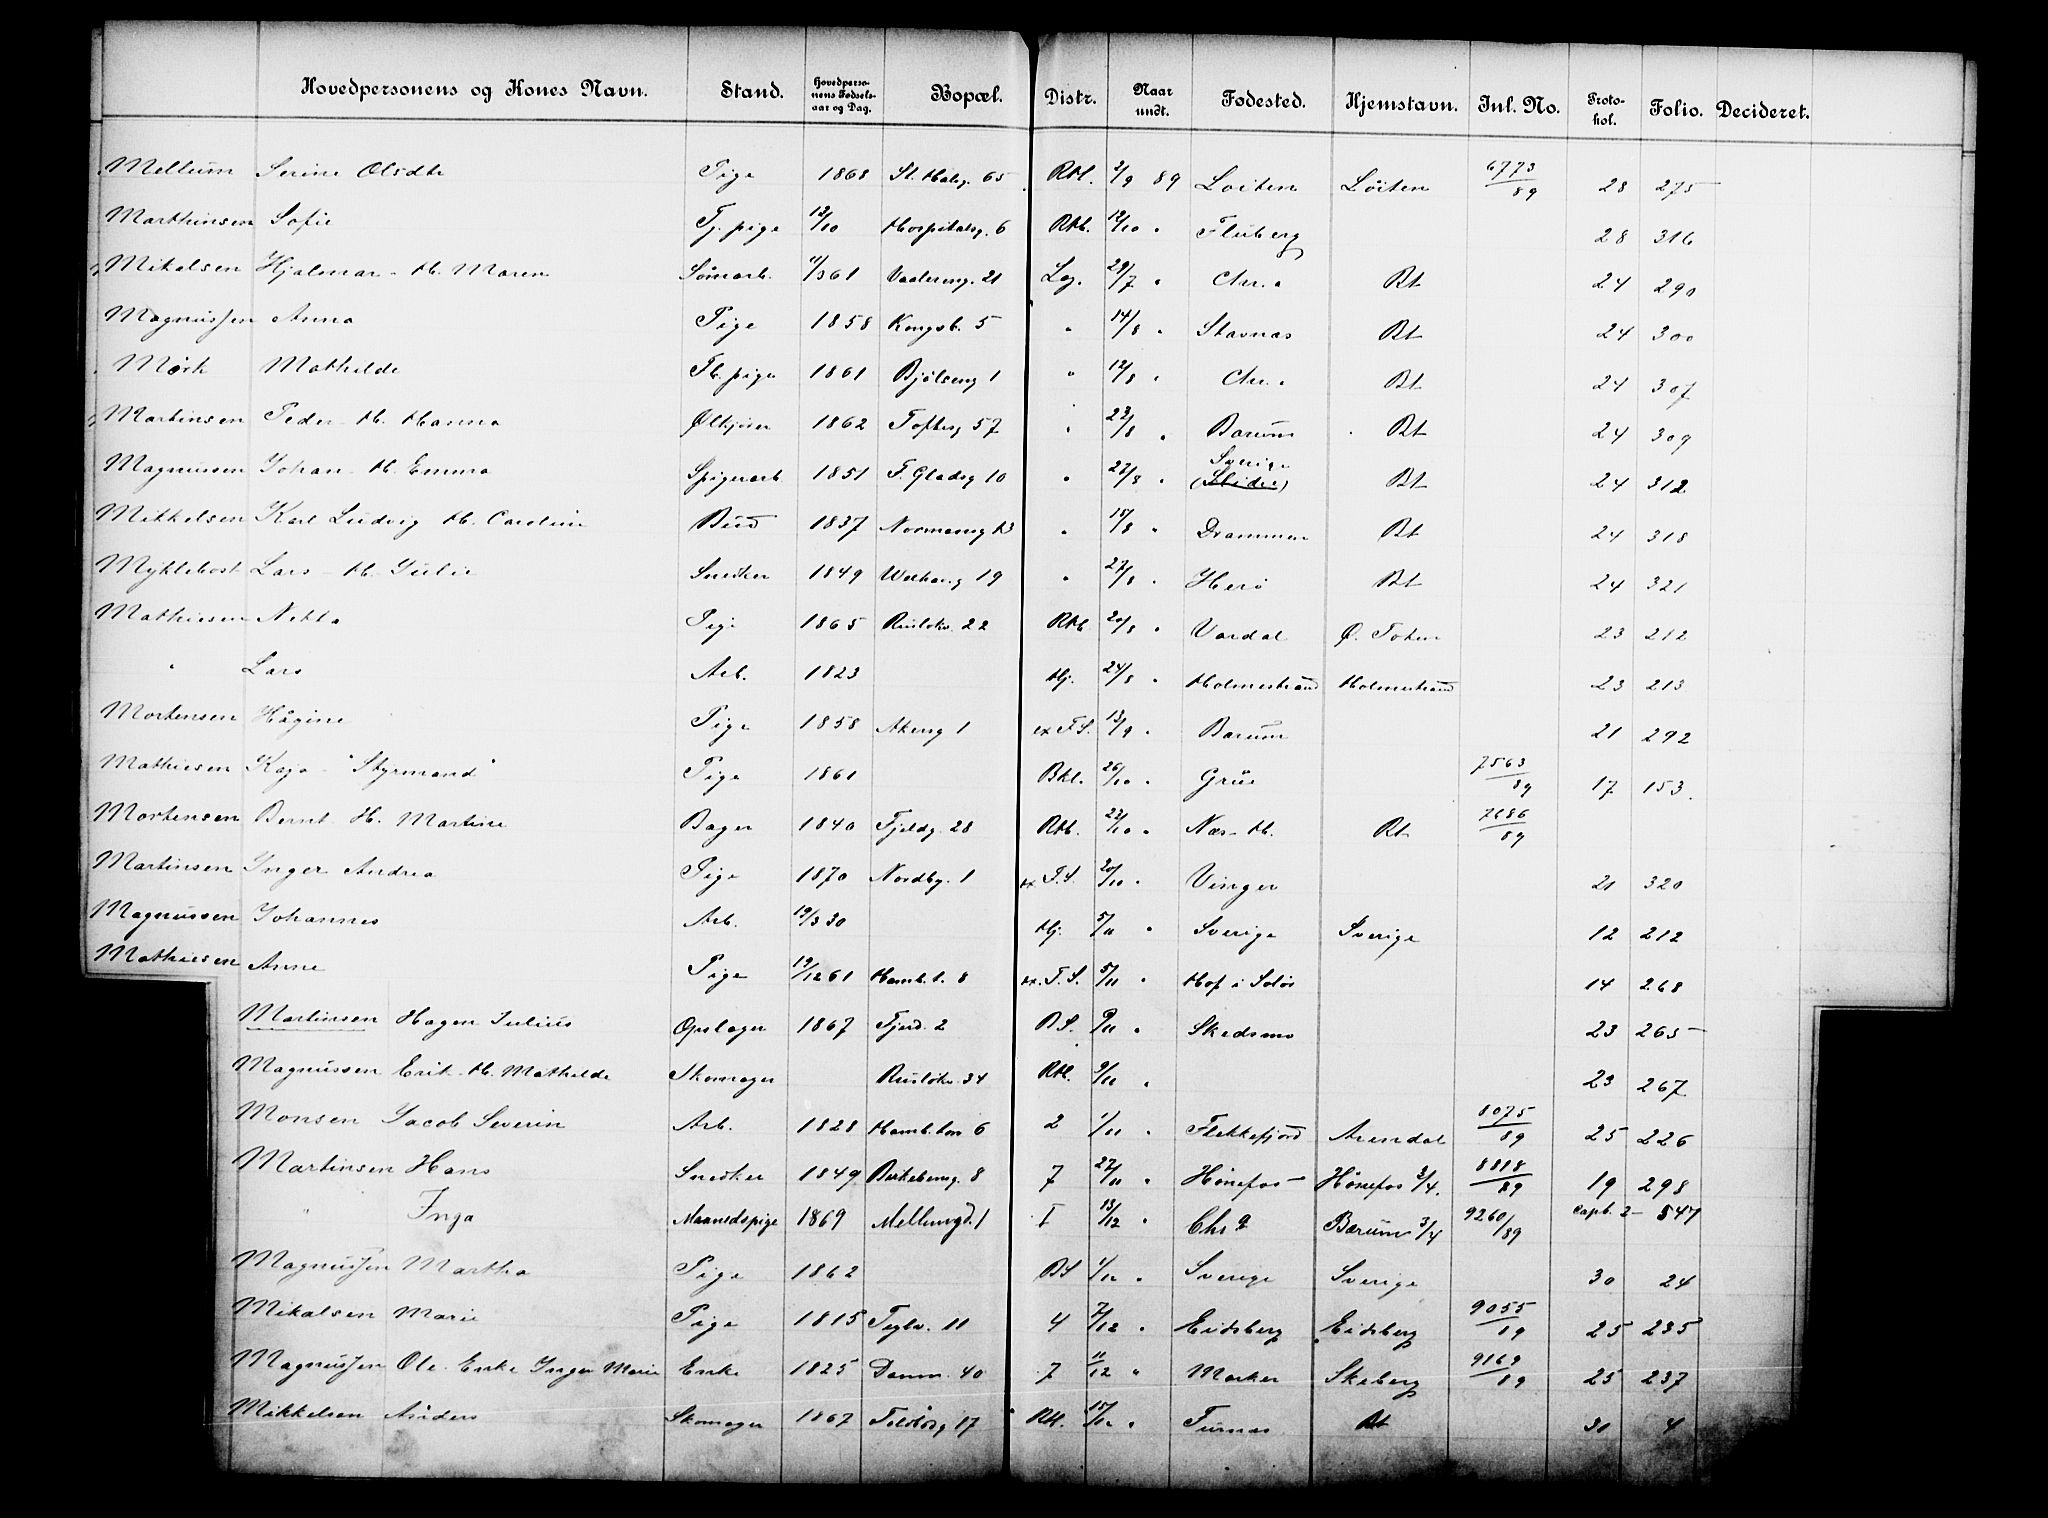 Hovedpersonens og Kones Navn. Stand. Hovedpersonens Fødselsaar og Dag. Bopæl. Distr. Naar undt. Fødested. Hjemstavn. Inl. No. Protokol. Folio. Decideret.
Mellum Serine Olsdtr Pige 1868 St. Halvg. 65 RHl. 2/9 89 Loiten Löiten 6773/89 28 275
Marthinsen Sofie Tj. pige 12/10 Hospitalsg. 6 RHb. 12/10 " Fluberg 28 316
Mikalsen Hjalmar - H. Maren 11/3 61 Vaalereng. 21 Lag. 29/7 " Chr. a Bt 24 290
Magnussen Anna Pige 1858 Kongsb. 5 " 14/8 " Stavnæs Bt 24 300
Mørk Mathilde Fb. pige 1861 Bjölseng 1 " 12/8 " Chr. a Bt 24 307
Martinsen Peder - H. Hanna Ølkjører 1862 Tofteg 57 " 23/8 " Bærum Bt 24 309
Magnussen Johan - H. Emma Spigerarb. 1851 T. Gladsg 10 " 27/8 " Sverige (Slidre) Bt 24 312
Mikkelsen Karl Ludvig H. Caroline Bud 1837 Normanng 13 " 15/8 " Drammen Bt 24 318
Myklebost Lars - H. Julie Snedker 1849 Welhavg 19 " 27/8 " Herö Bt 24 321
Mathiesen Netta Pige 1865 Ruslökv. 22 RHb 20/8 " Vardal Ø. Toten 23 212
" Lars Arb. 1823 Hj. 24/8 " Holmestrand Holmestrand 23 213
Mortensen Hågine Pige 1858 Akersg 1 ex F.S. 13/9 " Bærum 21 292
Mathiesen Kaja - "Styrmand" Pige 1861 BKl. 26/10 " Grue 7563/89 17 153
Mortensen Bernt H. Martine Bager 1840 Fjeldg. 28 RHb. 22/10 " Næs - H. Bt 7686/89
Martinsen Inger Andrea Pige 1870 Nordbyg. 1 ex F.S. 20/10 " Vinger 21 320
Magnussen Johannes Arb. 19/3 30 Hj. 5/11 " Sverige Sverige 12 212
Mathiesen Anne Pige 19/12 61 Hamb. t. 8 ex. F.S. 5/11 " Hof i Solör 14 268
Martinsen Hagen Julius Opslager 1867 Fjerd. 2 B S. 9/11 " Skedsmo 23 265
Magnussen Erik - H. Mathilde Skomager Ruslökv. 34 RHl. 9/11 " 23 267
Monsen Jacob Severin Arb. 1828 Hamb. 6 2 1/11 " Flekkefjord Arendal 8075/89 25 226
Martinsen Hans Snedker 1849 Birkebeing. 8 7 27/11 " Hönefos Hönefos 3/4. 8818/89 19 298
" Inga Maanedspige 1869 Mellumgd. 1 I 13/12 " Chra Bærum 3/4 9260/89 2 547
Magnussen Martha Pige 1862 BS 4/12 " Sverige Sverige 30 24
Mikalsen Marie Pige 1815 Teglv. 11 4 7/12 " Eidsberg Eidsberg 9055/89 25 235
Magnussen Ole - Enke Inger Marie Enke 1825 Damm. 40 7 11/12 " Marker Skiberg 9169/89 25 237
Mikkelsen Anders Skomager 1867 17 RHl. 15/12 " Furnæs Bt 30 4